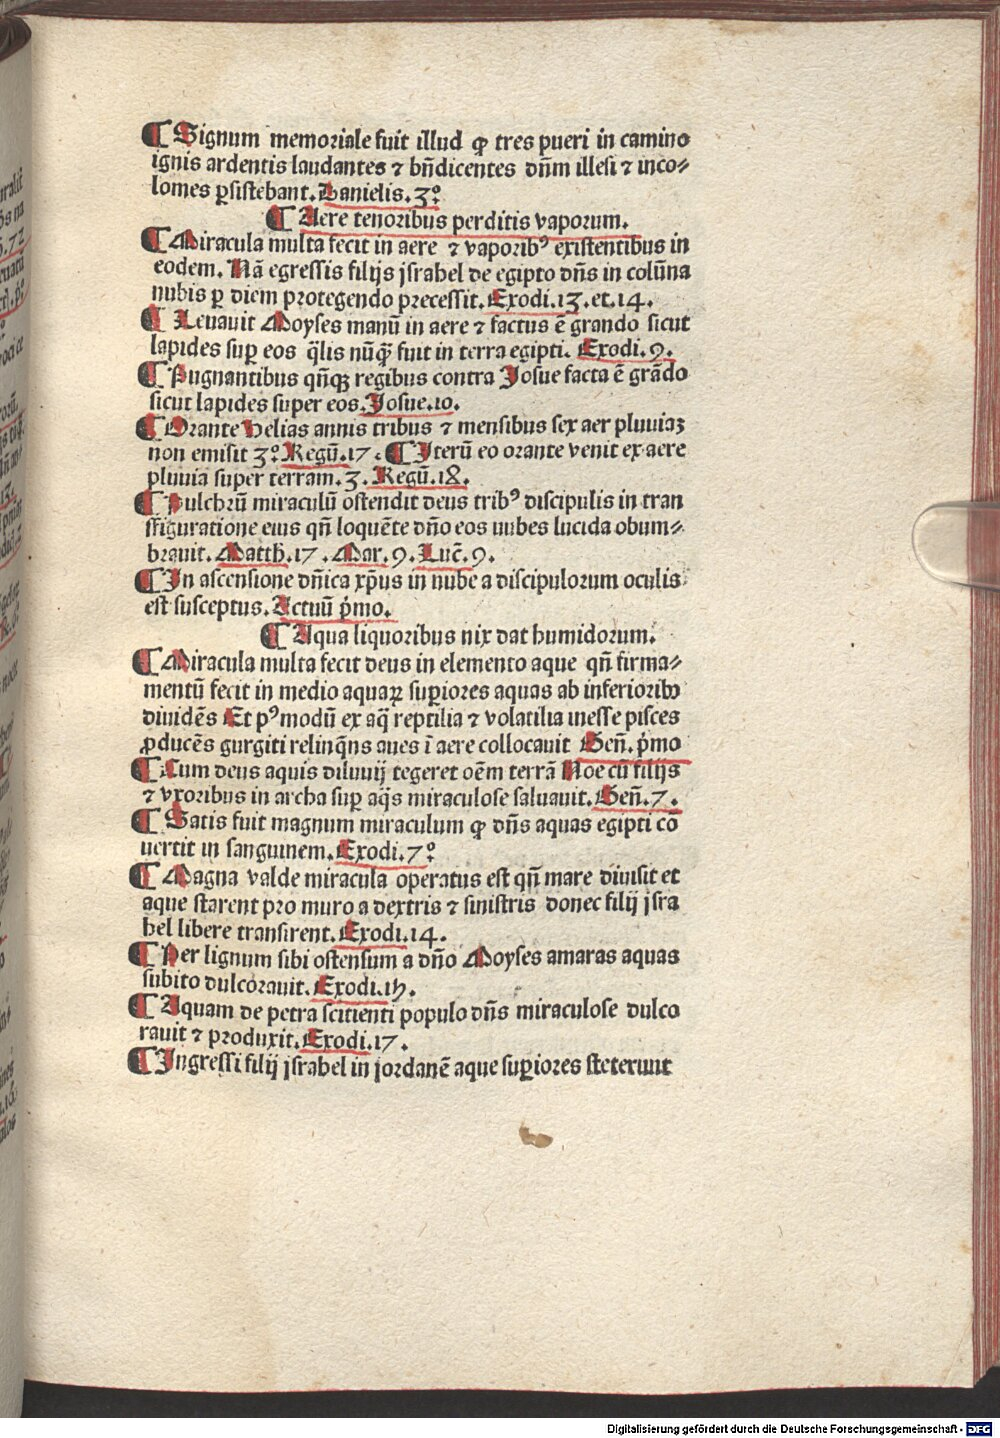 ¶ Signum memoriale fuit illud ꝙ tres pueri in camino
ignis ardentis laudantes ⁊ bñdicentes dñm illesi ⁊ inco⸗
lomes ꝑsistebant. Danielis. 3º
¶ Aere tenoribus perditis vaporum.
¶ Miracula multa fecit in aere ⁊ vaporibꝰ existentibus in
eodem. Nã egressis filijs jsrahel de egipto dñs in colũna
nubis ꝑ diem protegendo precessit. Exodi. 13. et. 14.
¶ Leuauit Moyses manũ in aere ⁊ factus ẽ grando sicut
lapides suꝑ eos q̃lis nũꝙ̃ fuit in terra egipti. Exodi. 9.
¶ Pugnantibus qñꝗꝫ regibus contra Josue facta ẽ grãdo
sicut lapides super eos. Josue. 10.
¶ Orante Helias annis tribus ⁊ mensibus sex aer pluuiaꝫ
non emisit 3º. Regũ. 17. ¶ Iterũ eo orante venit ex aere
pluuia super terram. 3. Regũ. 18.
¶ Pulchrũ miraculũ ostendit deus tribꝰ discipulis in tran
sfiguratione eius qñ loquẽte dño eos nubes lucida obum⸗
brauit. Matth. 17. Mar. 9. Luc̃. 9.
¶ In ascensione dñica xp̃us in nube a discipulorum oculis
est susceptus. Actuũ p̃mo.
¶ Aqua liquoribus nix dat humidorum.
¶ Miracula multa fecit deus in elemento aque qñ firma⸗
mentũ fecit in medio aquaꝝ suꝑiores aquas ab inferioribꝰ
diuidẽs Et pꝰmodũ ex aq̃ reptilia ⁊ volatilia inesse pisces
ꝓducẽs gurgiti relinq̃ns aues ĩ aere collocauit Geñ. p̃mo
¶ Cum deus aquis diluuij tegeret oẽm terrã Noe cũ filijs
⁊ vxoribus in archa suꝑ aq̃s miraculose saluauit. Geñ. 7.
¶ Satis fuit magnum miraculum ꝙ dñs aquas egipti cõ
uertit in sanguinem. Exodi. 7º
¶ Magna valde miracula operatus est qñ mare diuisit et
aque starent pro muro a dextris ⁊ sinistris donec filij jsra
hel libere transirent. Exodi. 14.
¶ Per lignum sibi ostensum a dño Moyses amaras aquas
subito dulcorauit. Exodi. 15.
¶ Aquam de petra scitienti populo dñs miraculose dulco
rauit ⁊ produxit. Exodi. 17.
¶ Ingressi filij jsrahel in jordanẽ aque suꝑiores steterunt
Digitalisierung gefördert durch die Deutsche Forschungsgemeinschaft - DFG